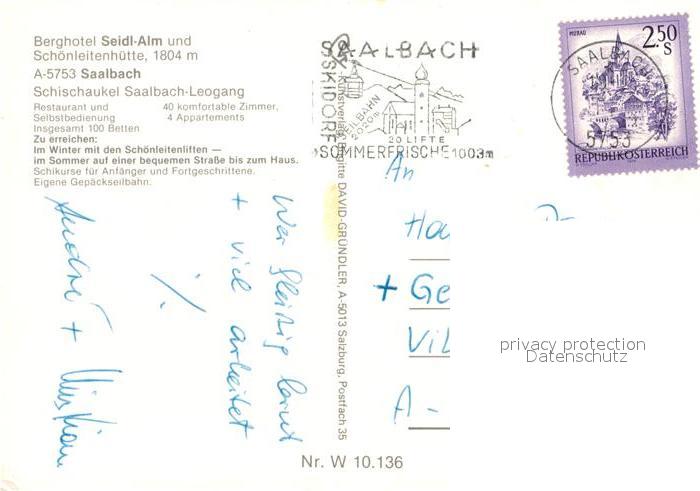 Berghotel Seidl-Alm und
Schönleitenhütte, 1804 m
A-5753 Saalbach
Schischaukel Saalbach-Leogang
Restaurant und 40 komfortable Zimmer,
Selbstbedienung 4 Appartements
Insgesamt 100 Betten
Zu erreichen:
Im Winter mit den Schönleitenliften —
im Sommer auf einer bequemen Straße bis zum Haus.
Schikurse für Anfänger und Fortgeschrittene.
Eigene Gepäckseilbahn.
SAALBACH
SKIDORF
SEILBAHN
2020m
20 LIFTE
SOMMERFRISCHE 1003m
MURAU
2.50
S
REPUBLIK ÖSTERREICH
SAALBACH
5753
Kunstverlag Brigitte DAVID-GRÜNDLER, A-5013 Salzburg, Postfach 35
Wer fleißig lernt
+ viel arbeitet
./.
+
An
+ Ge
Vil
A -
privacy protection
Datenschutz
Nr. W 10.136